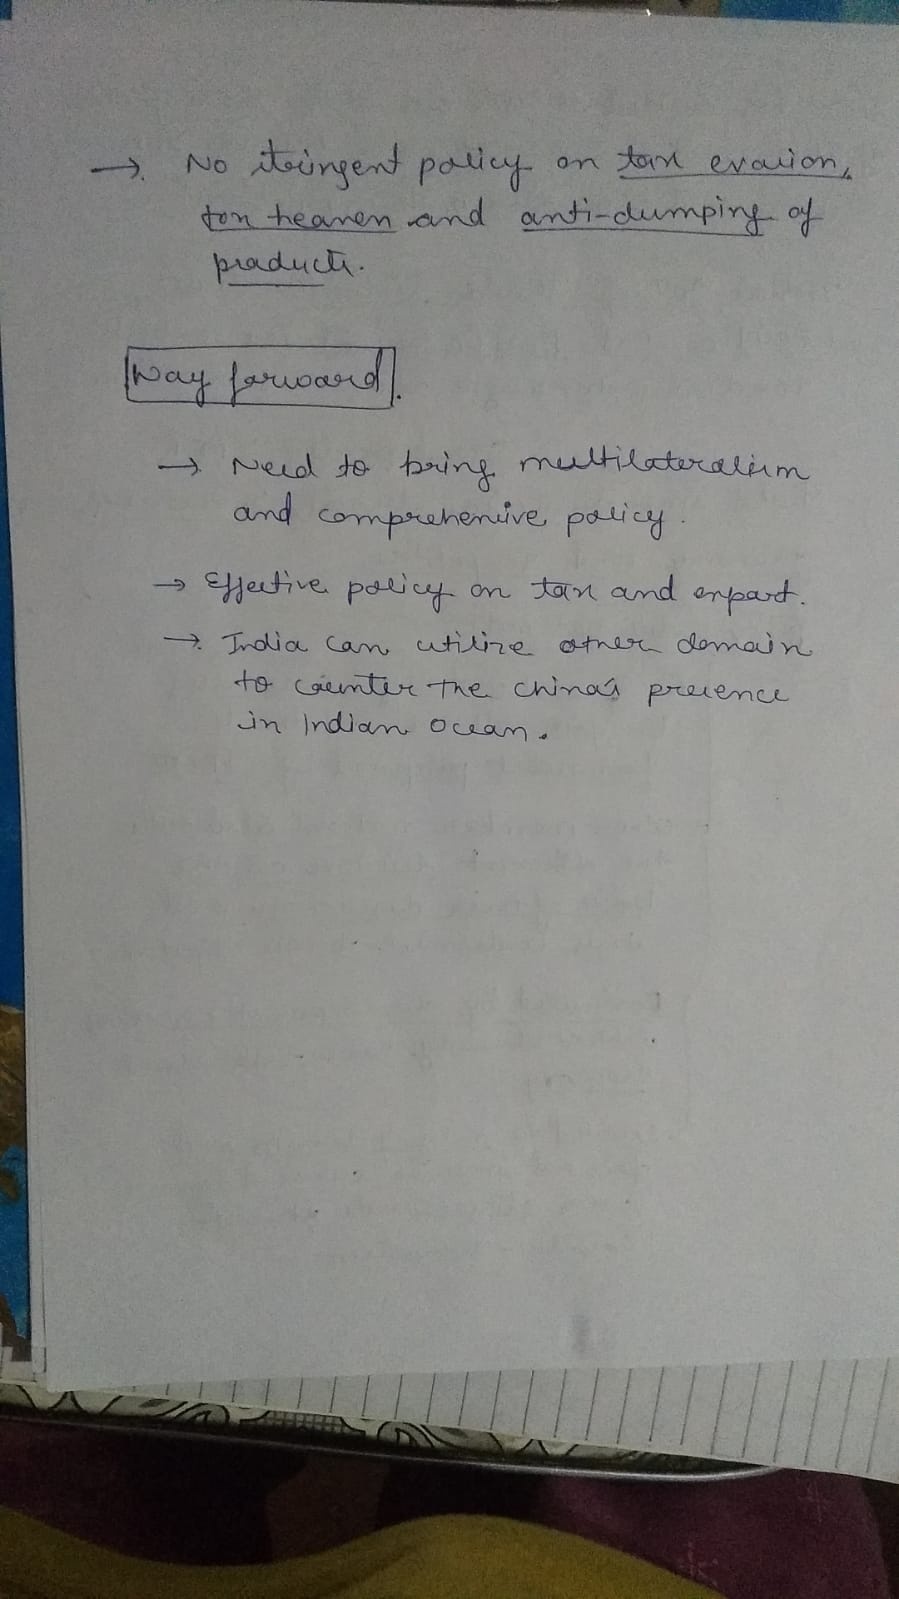 → No stringent policy on tax evasion,
tax heaven and anti-dumping of
products.
Way forward.
→ Need to bring multilateralism
and comprehensive policy.
→ Effective policy on tax and export.
→ India can utilize other domain
to counter the china's presence
in Indian Ocean.